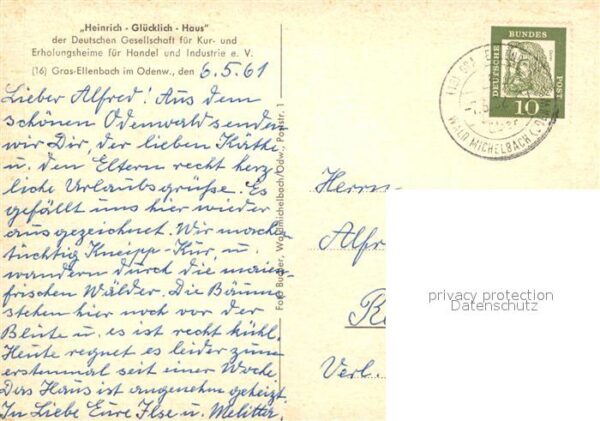 „Heinrich - Glücklich - Haus"
der Deutschen Gesellschaft für Kur- und
Erholungsheime für Handel und Industrie e. V.
(16) Gras-Ellenbach im Odenw., den 6.5.61
Lieber Alfred! Aus dem
schönen Odenwald senden
wir Dir, der lieben Käthe
u. den Eltern recht herz-
liche Urlaubsgrüße. Es
gefällt uns hier wieder
ausgezeichnet. Wir machen
tüchtig Kneipp-Kur, u.
wandern durch die maien-
frischen Wälder. Die Bäume
stehen hier noch vor der
Blüte u. es ist recht kühl.
Heute regnet es leider zum
erstenmal seit einer Woche.
Das Haus ist angenehm geheizt.
In Liebe Eure Ilse u. Melitta.
Foto Bucher, Waldmichelbach/Odw., Poststr. 1
DEUTSCHE BUNDES POST
10
WALD MICHELBACH
Herrn
Alfr
Verl.
privacy protection
Datenschutz